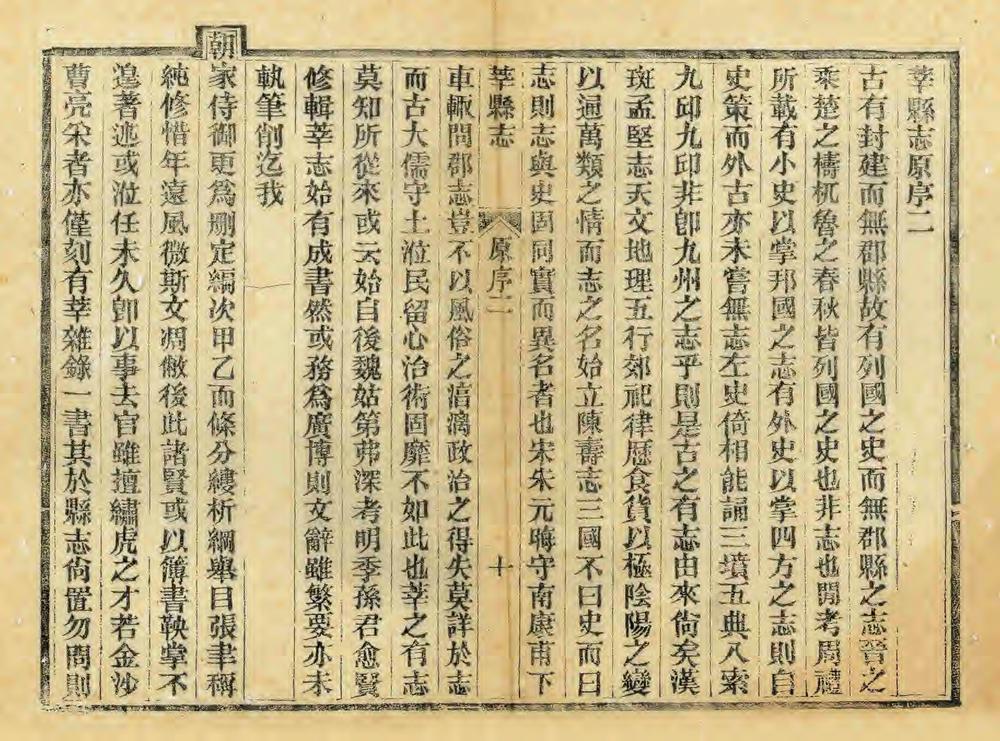 莘縣志原序二
古有封建而無郡縣故有列國之史而無郡縣之志晉之
乘楚之檮杌魯之春秋皆列國之史也非志也閒考周禮
所載有小史以掌邦國之志有外史以掌四方之志則自
史策而外古亦未嘗無志左史倚相能誦三墳五典八索
九邱九邱非卽九州之志乎則是古之有志由來尙矣漢
斑孟堅志天文地理五行郊祀律歷食貨以極陰陽之變
以通萬類之情而志之名始立陳壽志三國不曰史而曰
志則志與史固同實而異名者也宋朱元晦守南康甫下
莘縣志 原序二 十
車輙問郡志豈不以風俗之湻漓政治之得失莫詳於志
而古大儒守土涖民留心治術固靡不如此也莘之有志
莫知所從來或云始自後魏姑第弗深考明季孫君愈賢
修輯莘志始有成書然或務爲廣博則文辭雖繁要亦未
執筆削迄我
朝家侍御更爲刪定編次甲乙而條分縷析綱舉目張聿稱
純修惜年遠風微斯文凋敝後此諸賢或以簿書鞅掌不
遑著述或涖任未久卽以事去官雖擅繡虎之才若金沙
曹亮采者亦僅刻有莘雜錄一書其於縣志尙置勿問則